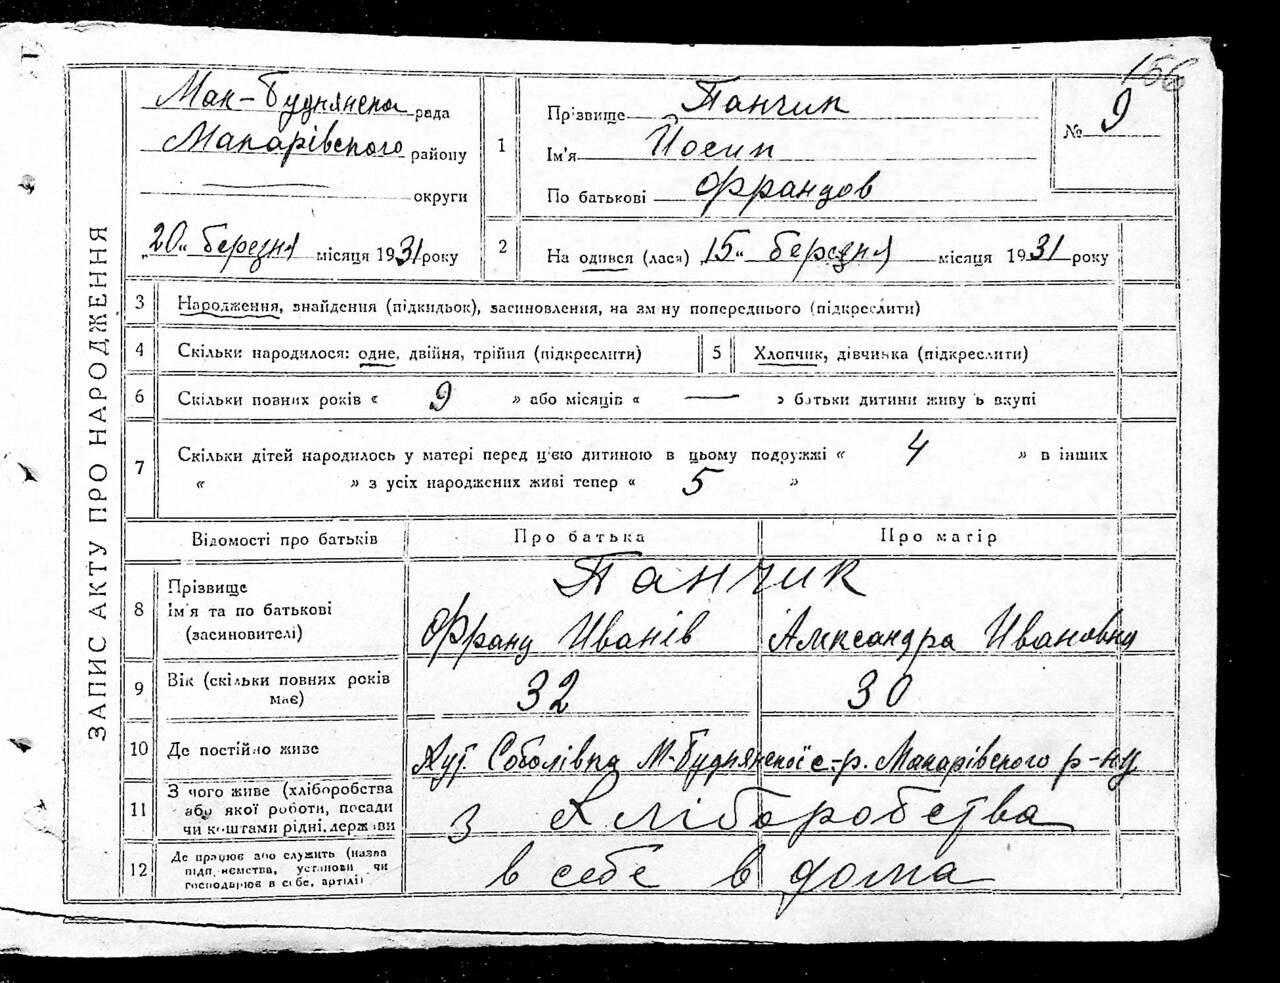 156
ЗАПИС АКТУ ПРО НАРОДЖЕННЯ
Мак-Буднянска рада
Макарівского району
округи
„20“ березня місяця 1931 року
1
Прізвище Панчик
Ім'я Йосип
По батькові Францов
№ 9
2
На одився (лася) „15“ березня місяця 1931 року
3 Народження, знайдення (підкидьок), засиновлення, на зміну попереднього (підкреслити)
4 Скільки народилося: одне, двійня, трійня (підкреслити)
5 Хлопчик, дівчинка (підкреслити)
6 Скільки повних років « 9 » або місяців « — » батьки дитини живуть вкупі
7 Скільки дітей народилось у матері перед цією дитиною в цьому подружжі « 4 » в інших
« » з усіх народжених живі тепер « 5 »
Відомості про батьків Про батька Про матір
8 Прізвище
Ім'я та по батькові
(засиновителі)
Панчик
Франц Иванів Александра Ивановна
9 Вік (скільки повних років
має)
32 30
10 Де постійно живе Хут. Соболівка М-Буднянскої с-р. Макарівского р-ну
11 З чого живе (хліборобства
або якої роботи, посади
чи коштами рідні, держави
З Хліборобства
12 Де працює або служить (назва
підприємства, установи чи
господарює в себе, артілі)
в себе в дома